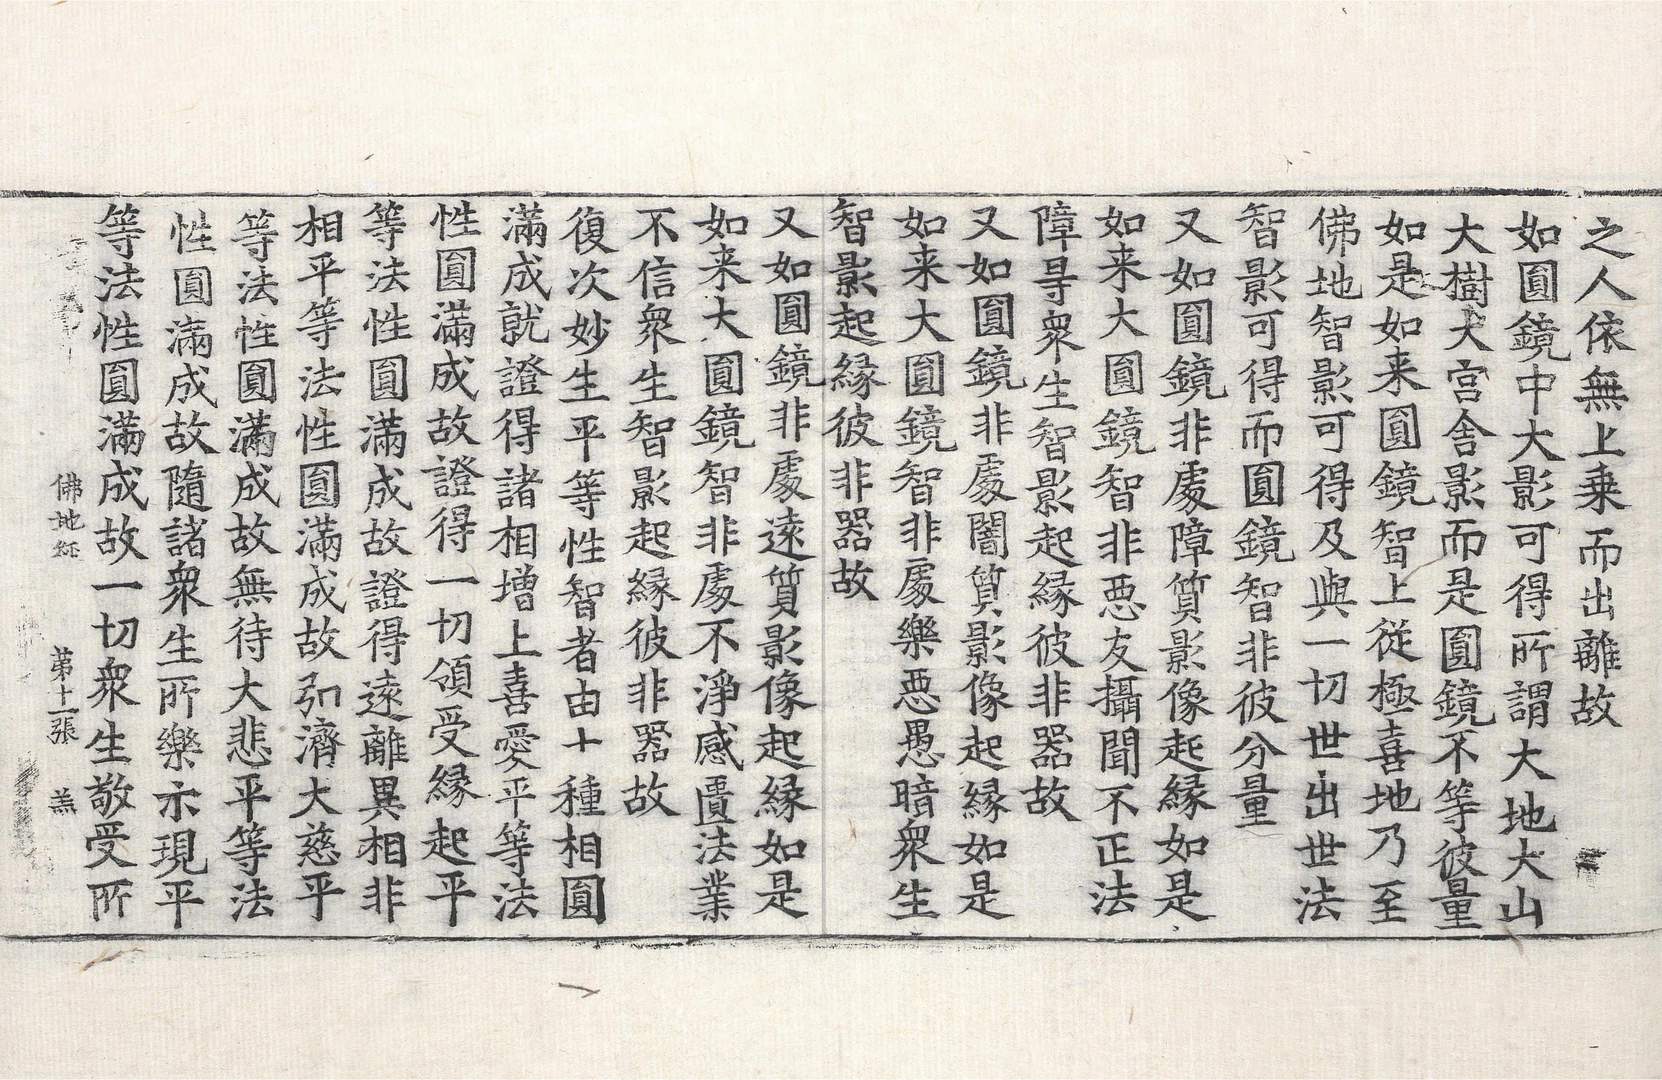 之人依無上乗而出離故
如圎鏡中大影可得所謂大地大山
大樹大宫舎影而是圎鏡不等彼量
如是如来圎鏡智上従極喜地乃至
佛地智影可得及與一切世出世法
智影可得而圎鏡智非彼分量
又如圎鏡非處障質影像起縁如是
如来大圎鏡智非悪友攝聞不正法
障㝵衆生智影起縁彼非器故
又如圎鏡非處闇質影像起縁如是
如来大圎鏡智非處樂悪愚暗衆生
智影起縁彼非器故
又如圎鏡非處遠質影像起縁如是
如来大圎鏡智非處不淨感匱法業
不信衆生智影起縁彼非器故
復次妙生平等性智者由十種相圎
滿成就證得諸相增上喜愛平等法
性圎滿成故證得一切領受縁起平
等法性圎滿成故證得遠離異相非
相平等法性圎滿成故弘濟大慈平
等法性圎滿成故無待大悲平等法
性圎滿成故隨諸衆生所樂示現平
等法性圎滿成故一切衆生敬受所
佛地経 苐十一張 羔